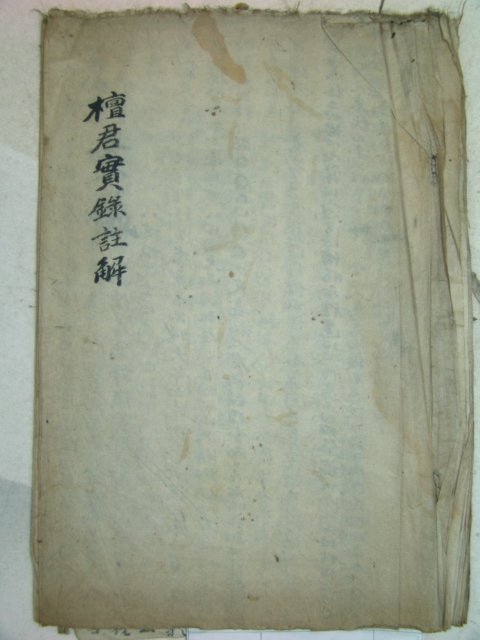 檀君實錄註解